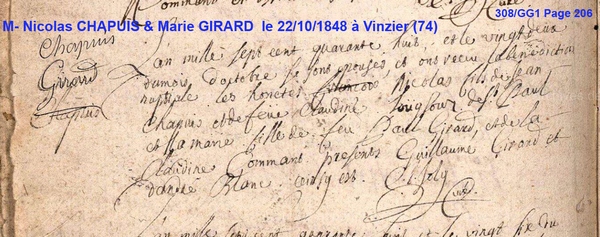 M- Nicolas CHAPUIS & Marie GIRARD le 22/10/1848 à Vinzier (74)
308/GG1 Page 206
Chapuis
Girard
Chapuis
L'an mille sept cent quarante huit et le vingt deux
du mois d'octobre se sont epouses et ont receu la benediction
nuptiale les honetes Nicolas fils de Jean
Chapuis et de feue Claudine de St Paul
et la marie fille de feu Girard et de la
Claudine Commant presents Guillaume Girard et
d'andre Blanc ainsy est
L'an mille sept cent quarante huit et le vingt six du